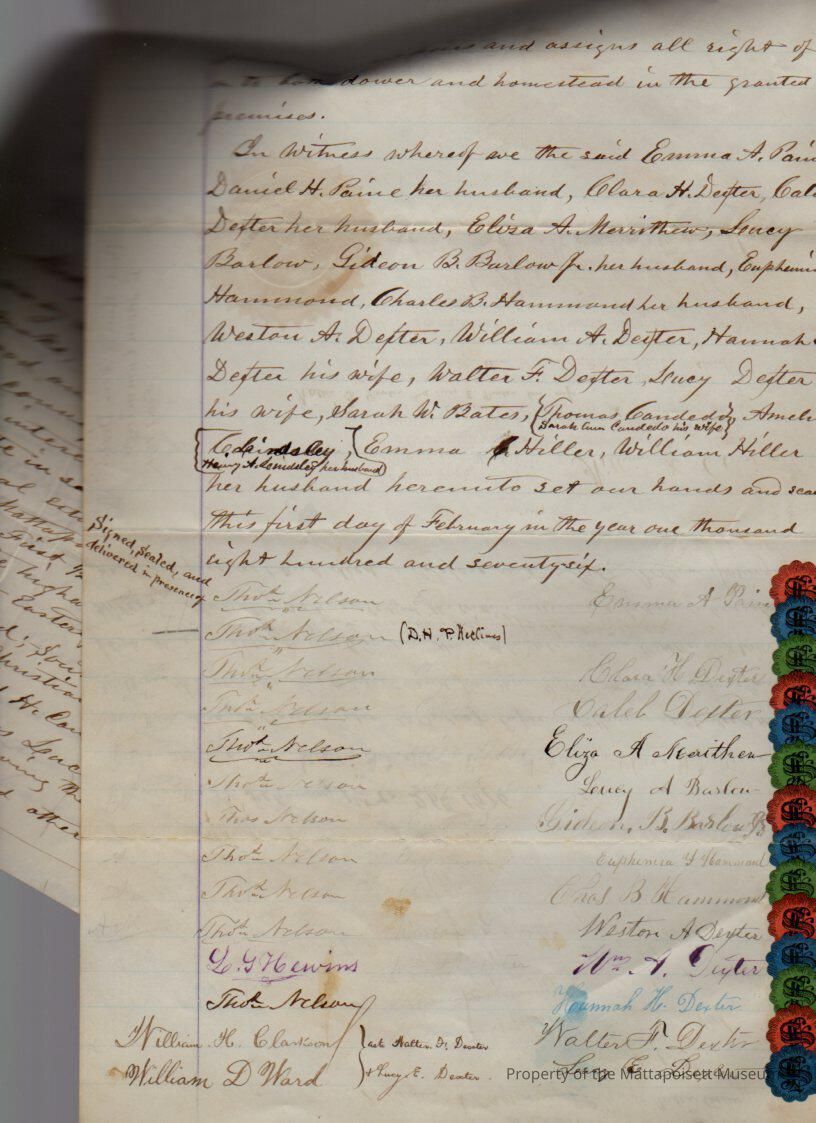 and assigns all right of
dower and homestead in the granted
premises.
In Witness whereof we the said Emma A. Pain
Daniel H. Paine her husband, Clara H. Dexter, Cal
Dexter her husband, Eliza A. Merrithew, Lucy
Barlow, Gideon B. Barlow Jr. her husband, Euphemi
Hammond, Charles B. Hammond her husband,
Weston A. Dexter, William A. Dexter, Hannah
Dexter his wife, Walter F. Dexter, Lucy Dexter
his wife, Sarah W. Bates, {Thomas Candedo} Ameli
Sarah Ann Candedo his wife
C. Lindsley, Emma Hiller, William Hiller
Henry A. Lindsley her husband
her husband hereunto set our hands and sea
this first day of February in the year one thousand
eight hundred and seventy six.
Signed, Sealed, and
delivered in presence of
Thos. Nelson Emma A Pain
Thos. Nelson (D. H. P. Declines)
Thos. Nelson Clara H Dexter
Thos. Nelson Caleb Dexter
Thos. Nelson Eliza A Merithew
Thos. Nelson Lucy A Barlow
Thos Nelson Gideon B. Barlow Jr
Thos. Nelson Euphemia Y Hammond
Thos. Nelson Chas B Hammond
Thos. Nelson Weston A Dexter
L. G Hewins Wm. A. Dexter
Thos. Nelson Hannah H. Dexter
William H. Clarkson } as to Walter F. Dexter Walter F. Dexter
William D Ward } & Lucy E. Dexter. Lucy E.
Property of the Mattapoisett Museum